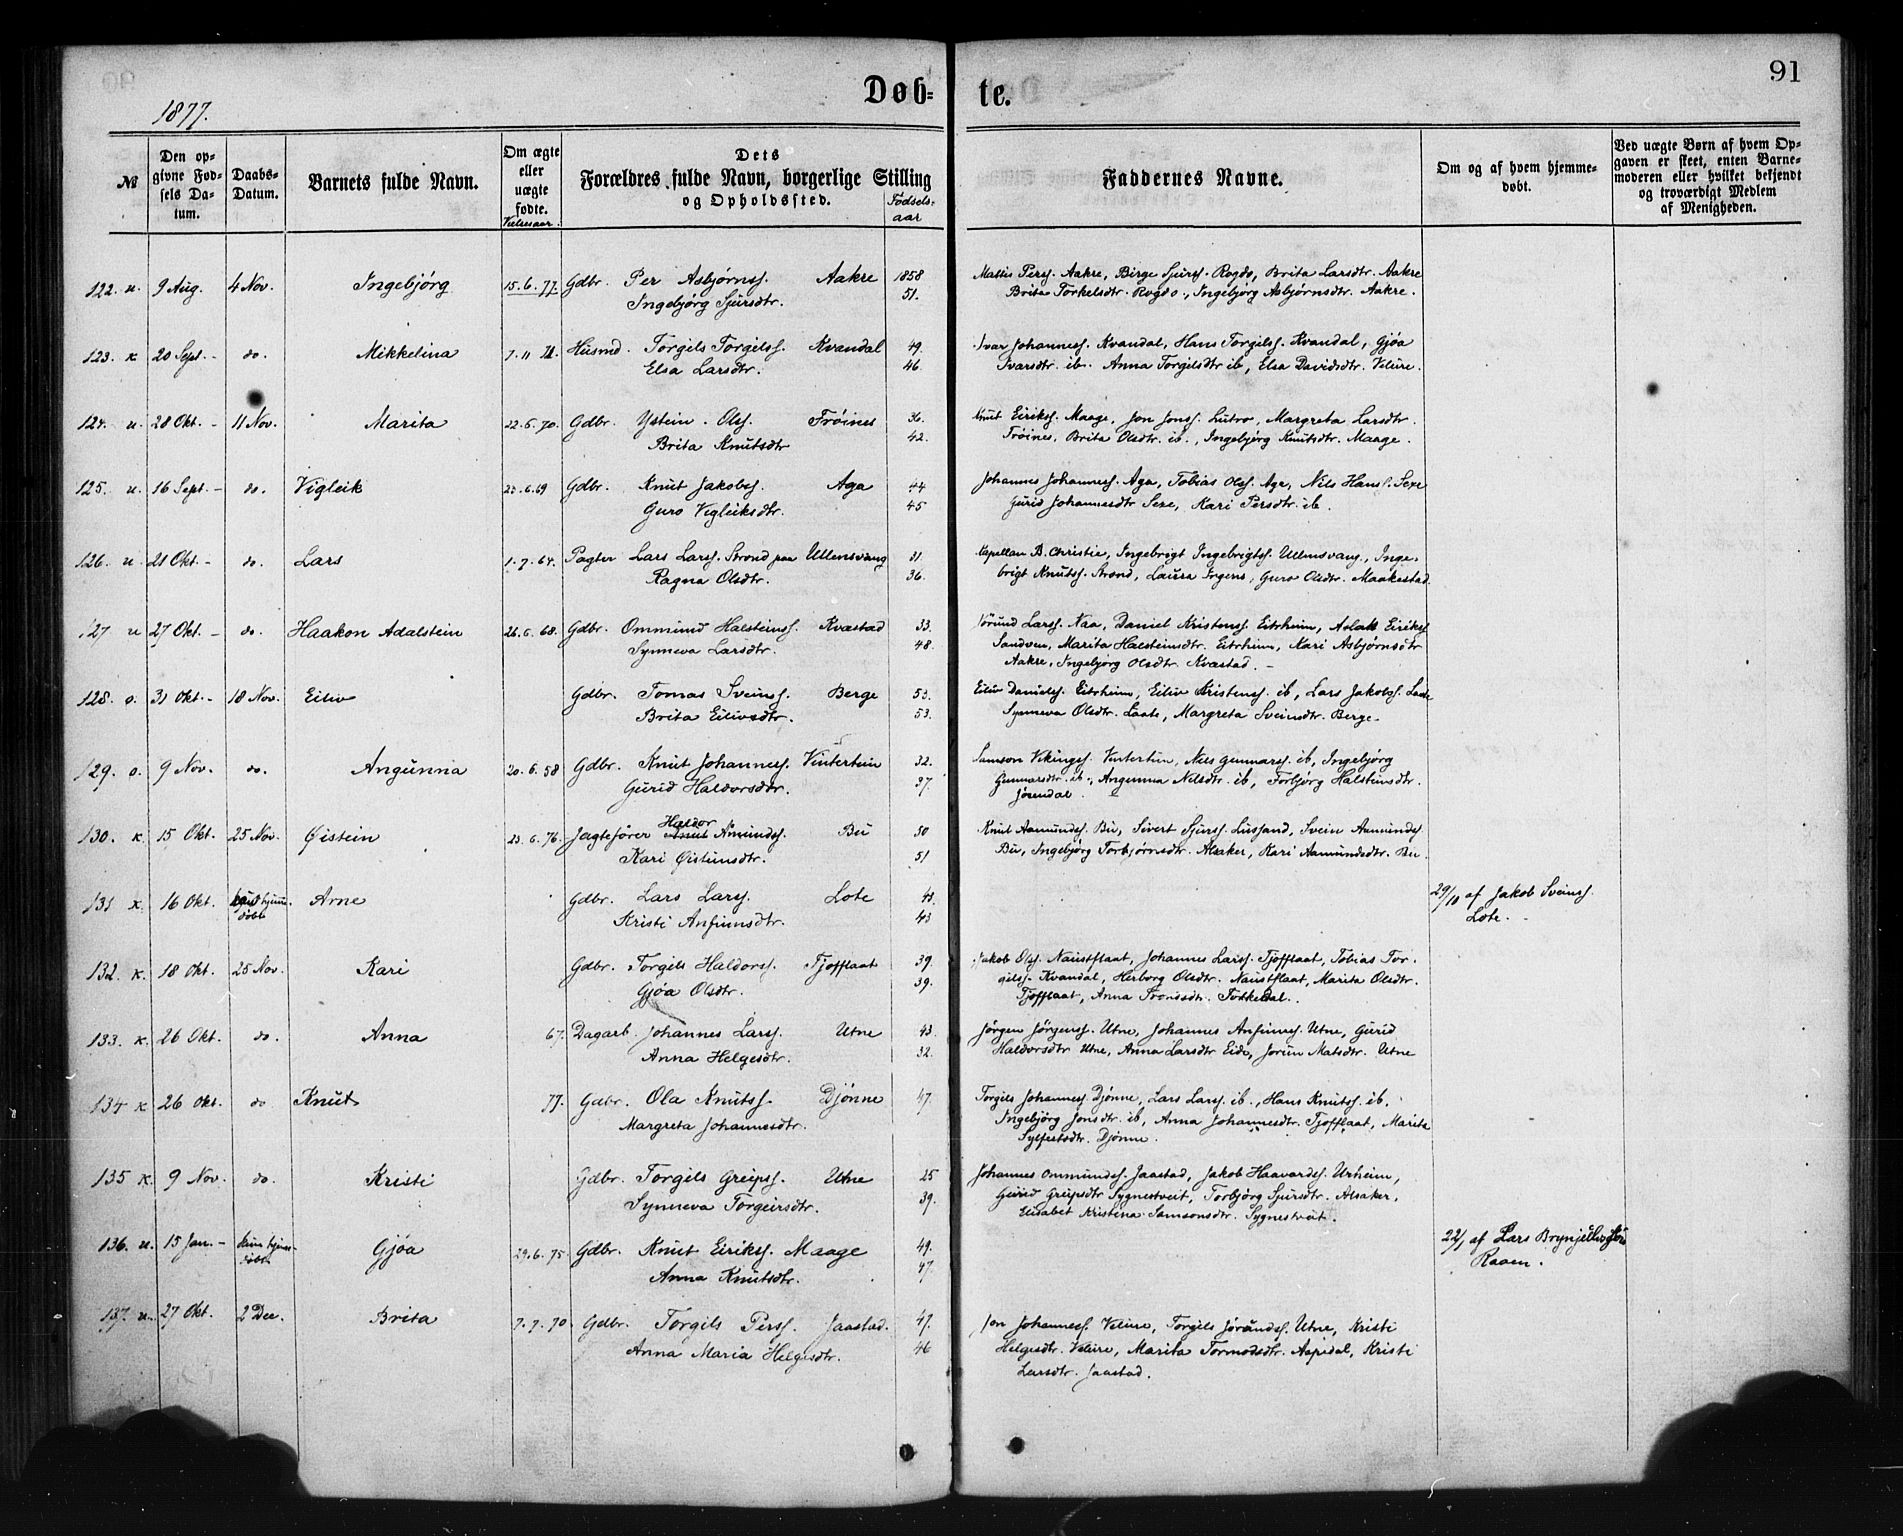 91
Døb- te.
1877.
№ | Den opgivne Fødsels Datum. | Daabs-Datum. | Barnets fulde Navn. | Om ægte eller uægte fødte. Vielsesaar. | Dets Forældres fulde Navn, borgerlige Stilling og Opholdssted. | Fødselsaar | Faddernes Navne. | Om og af hvem hjemmedøbt. | Ved uægte Børn af hvem Opgaven er skeet, enten Barnemoderen eller hvilket bekjendt og troværdigt Medlem af Menigheden.
122. u. 9 Aug. 4 Nov. Ingebjörg 15.6.77. Gdbr. Per Asbjørnss. Aakre 1858 Mattis Perss. Aakre, Birge Sjurss. Rogdo, Brita Larsdtr. Aakre
Ingebjörg Sjursdtr. 51. Brita Torkelsdtr. Rogdo, Ingebjörg Asbjörnsdtr. Aakre.
123. k 20 Sept. - do. Mikkelina 7.11 Husmd. Torgils Torgilss. Kvandal 49. Ivar Johanness. Kvandal, Hans Torgilss. Kvandal, Gjøa
Elsa Larsdtr. 46. Ivarsdtr. ib. Anna Torgilsdtr ib, Elsa Davidsdtr. Velure.
124. u. 28 Okt. - 11 Nov. Marita 22.6.70. Gdbr. Ystein Olss. Tröines 36. Knut Eirikss. Maage, Jon Jonss. Lutro, Margreta Larsdtr
Brita Knutsdtr 42. Tröines, Brita Olsdtr. ib., Ingebjörg Knutsdtr. Maage.
125. u. 16 Sept. - do. Vigleik 23.6.69 Gdbr. Knut Jakobss. Aga 44 Johannes Johanness. Aga, Tobias Olss. Aga, Nils Hanss. Sexe
Guro Vigleiksdtr. 45 Gurid Johannesdtr Sexe, Kari Persdtr. ib.
126. u. 21 Okt. - do. Lars 1.7.64. Pagter Lars Larss. Strond paa Ullensvang 31. Kapellan B. Christie, Ingebrigt Ingebrigtss. Ullensvang, Inge-
Ragna Olsdtr. 36. brigt Knutss. Strond, Laura Ingens, Guro Olsdtr. Maakestad.
127 u 27 Okt. - do. Haakon Adalstein 26.6.68. Gdbr. Ommund Halsteinss. Kvæstad 33. Jörund Larss. Naa, Daniel Kristenss. Eitrheim, Aslak Eirikss
Synneva Larsdtr. 48. Sandven, Marita Halsteinsdtr. Eitrheim, Kari Asbjørnsdtr
Aakre, Ingebjörg Olsdtr. Kvæstad. -
128. o. 31 Okt. - 18 Nov. Eiliv Gdbr. Tomas Sveinss. Berge 53. Eiliv Danielss. Eitrheim, Eiliv Kristenss. ib, Lars Jakobss. Laate
Brita Eilivsdtr. 53. Synneva Olsdtr. Laate, Margreta Sveinsdtr. Berge.
129. o. 9 Nov. do. Angunna 20.6.58 Gdbr. Knut Johanness. Vintertun 32. Samson Vikingss. Vintertun, Nils Gunnarss. ib, Ingebjörg
Gurid Haldorsdtr. 37. Gunnarsdtr. ib., Angunna Nilsdtr. ib, Torbjörg Halsteinsdtr.
Jösendal.
130. k. 15 Okt. 25 Nov. Øistein 23.6.76. Jagtefører Haldor Amundss. Bu 50 Knut Aamundss. Bu, Sivert Sjurss. Lussand, Svein Aamundss.
Kari Øisteinsdtr. 51 Bu, Ingebjörg Torbjörnsdtr. Alsaker, Kari Aamundsdtr. Bu.
131 k. 16 Okt. kun hjemmedøbt Arne Gdbr. Lars Larss. Lote 43. 29/10 af Jakob Sveinss.
Kristi Anfinnsdtr. 43 Lote.
132. k. 18 Okt. 25 Nov. Kari Gdbr. Torgils Haldorss. Tjoflaat 39. Jakob Olss. Naustflaat, Johannes Larss. Tjofflaat, Tobias Tor-
Gjøa Olsdtr. 39. gilss. Kvandal, Herborg Olsdtr. Naustflaat, Marita Olsdtr.
Tjofflaat, Anna Trondsdtr.
133. k. 26 Okt. do. Anna 67. Dagarb. Johannes Larss. Utne 43. Jørgen Jørgenss. Utne, Johannes Anfinnss. Utne, Gurid
Anna Helgesdtr. 32. Haldorsdtr Utne, Anna Larsdtr Eide, Jorun Matsdtr. Utne
134 k 26 Okt. do Knut 77. Gdbr. Ola Knutss. Djønne 47. Torgils Johanness. Djønne, Lars Larss. ib., Hans Knutss. ib,
Margreta Johannesdtr. Ingebjörg Jonsdtr. ib, Anna Johannesdtr. Tjofflaat, Marita
Sylfestsdtr. Djønne.
135 k. 9 Nov. do. Kristi Gdbr. Torgils Greipss. Utne 25 Johannes Ommundss. Jaastad, Jakob Haavardss. Urheim,
Synneva Torgeirsdtr. 39. Gurid Greipsdtr Sygnestveit, Torbjörg Sjursdtr. Alsaker,
Elisabet Kristina Samsonsdtr. Sygnestveit.
136. u. 15 Jan. - kun hjemmedøbt Gjøa 29.6.75. Gdbr. Knut Eirikss. Maage 49. 22/1 af Lars Brynjulvss.
Anna Knutsdtr. 47. Raaen.
137. u. 27 Okt. 2 Dec. Brita 7.7.70. Gdbr. Torgils Perss. Jaastad. 47. Jon Johanness. Velure, Torgils Jörundss. Utne, Kristi
Anna Maria Helgesdtr. 46 Helgesdtr. Velure, Marita Tormodsdtr. Aspedal, Kristi
Larsdtr. Jaastad.